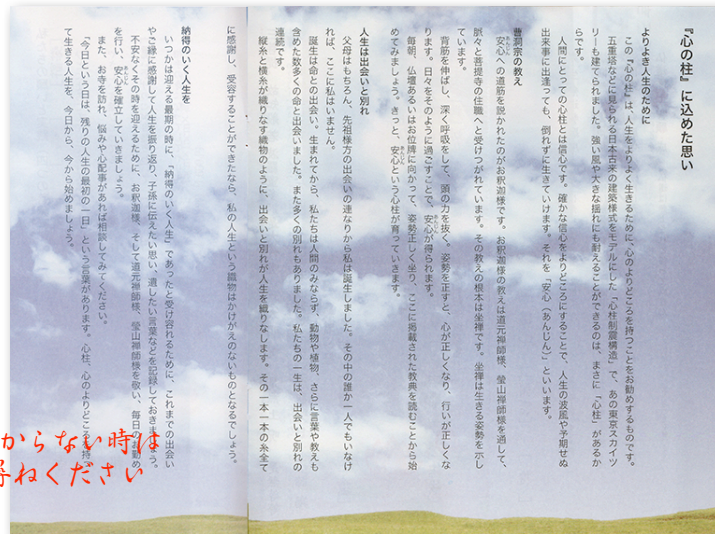 『心の柱』に込めた思い
よりよき人生のために
この『心の柱』は、人生をよりよく生きるために、心のよりどころを持つことをお勧めするものです。
五重塔などに見られる日本古来の建築様式をモデルにした「心柱制震構造」で、あの東京スカイツ
リーも建てられました。強い風や大きな揺れにも耐えることができるのは、まさに「心柱」があるか
らです。
人間にとっての心柱とは信心です。確かな信心をよりどころにすることで、人生の波風や予期せぬ
出来事に出逢っても、倒れずに生きていけます。それを「安心（あんじん）」といいます。
曹洞宗の教え
安心への道筋を説かれたのがお釈迦様です。お釈迦様の教えは道元禅師様、瑩山禅師様を通して、
脈々と菩提寺の住職へと受けつがれています。その教えの根本は坐禅です。坐禅は生きる姿勢を示し
ています。
背筋を伸ばし、深く呼吸をして、頭の力を抜く。姿勢を正すと、心が正しくなり、行いが正しくな
ります。日々をそのように過ごすことで、安心が得られます。
毎朝、仏壇あるいはお位牌に向かって、姿勢正しく坐り、ここに掲載された教典を読むことから始
めてみましょう。きっと、安心という心柱が育っていきます。
人生は出会いと別れ
父母はもちろん、先祖様方の出会いの連なりから私は誕生しました。その中の誰か一人でもいなけ
れば、ここに私はいません。
誕生は命との出会い。生まれてから、私たちは人間のみならず、動物や植物、さらに言葉や教えも
含めた数多くの命と出会いました。また多くの別れもありました。私たちの一生は、出会いと別れの
連続です。
縦糸と横糸が織りなす織物のように、出会いと別れが人生を織りなします。その一本一本の糸全て
に感謝し、受容することができたなら、私の人生という織物はかけがえのないものとなるでしょう。
納得のいく人生を
いつかは迎える最期の時に、「納得のいく人生」であったと受け容れるために、これまでの出会い
やご縁に感謝して人生を振り返り、子孫に伝えたい思い、遺したい言葉などを記録しておきましょう。
不安なくその時を迎えるために、お釈迦様、そして道元禅師様、瑩山禅師様を敬い、毎日のお勤め
を行い、安心を確立していきましょう。
また、お寺を訪れ、悩みや心配事があれば相談してみてください。
「今日という日は、残りの人生の最初の一日」という言葉があります。心柱、心のよりどころを持っ
て生きる人生を、今日から、今から始めましょう。
からない時は
尋ねください